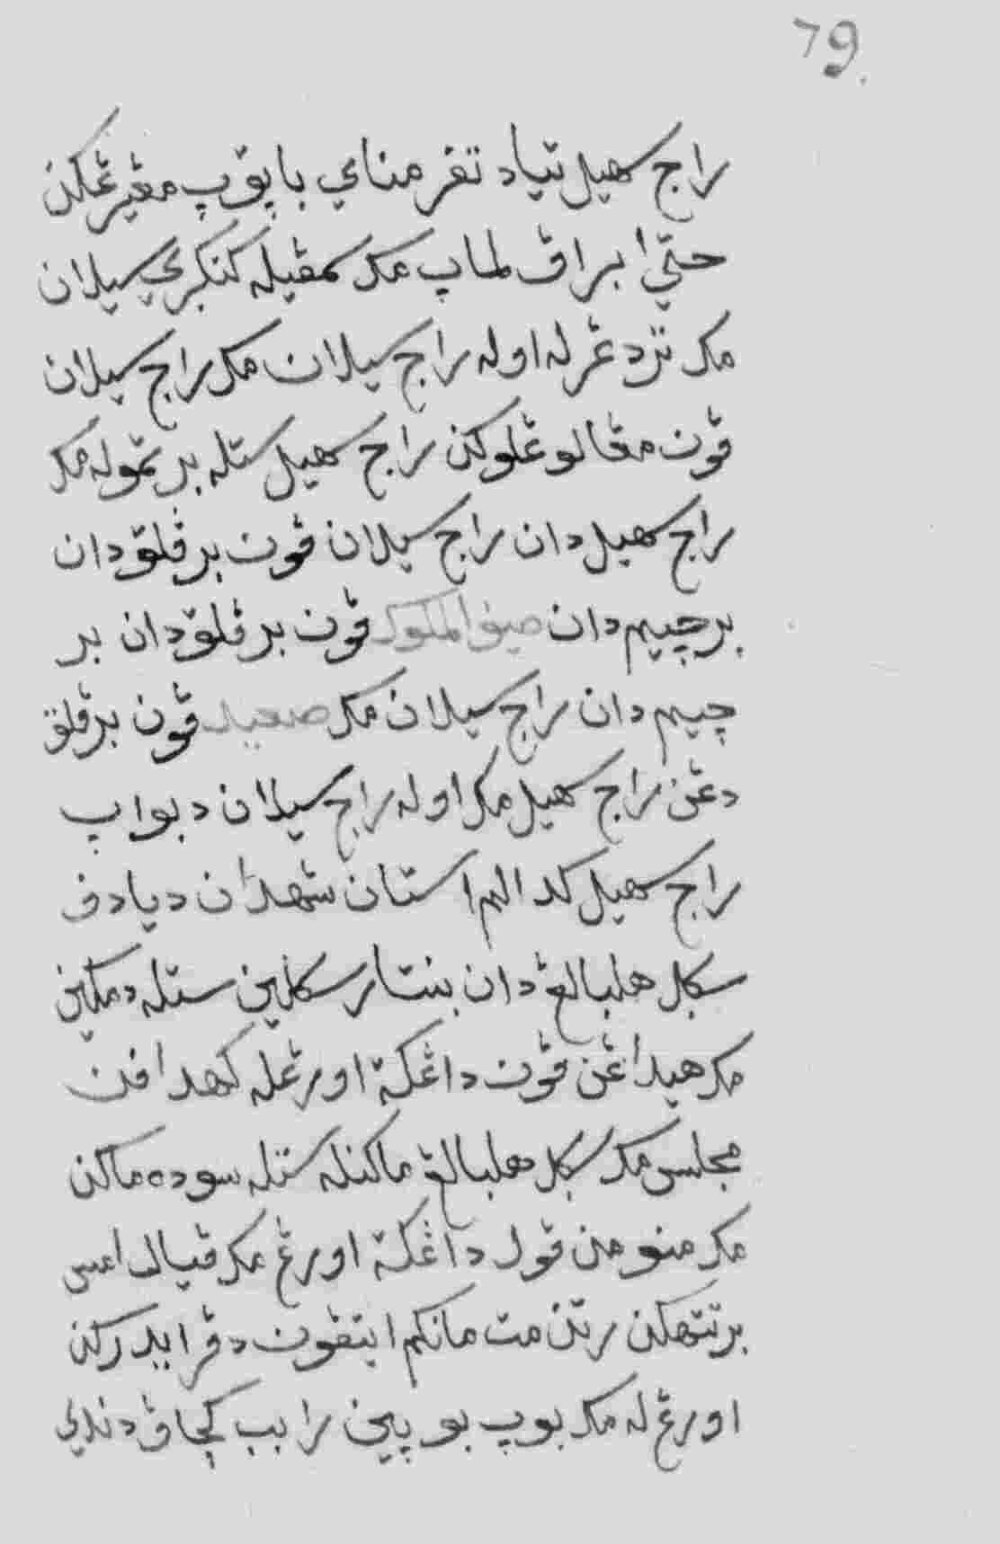 79.
راج سهيل تياد تفرمناي باڽق ڽ مڠيرڠكن
حتي ابراڤ لماڽ مک سمڤيله کنکري سيلان
مک تردڠرله اوله راج سيلان مک راج سيلان
ڤون مڠالوڠلوكن راج سهيل ستله برتمو له مک
راج سهيل دان راج سيلان ڤون برڤلق دان
برچيم دان صيف الملوک ڤون برڤلق دان بر
چيم دان راج سيلان مک صعيد ڤون برڤلق
دڠن راج سهيل مک اوله راج سيلان دبواڽ
راج سهيل كدالم استان شهدان دياد ف
سكل هلبالڠ دان بنتار سكلين ستله دمكين
مک هيداڠن ڤون داڠكة اورڠله كهداڤن
مجلس مک سكل هلبالڠ ماكنله ستله سوده ماكن
مک منومن ڤول داڠكة اورڠ مک ڤيال امس
برتتهكن رتن مت مانكم ايتڤون دڤرايدركن
اورڠ له مک بوڽ بوڽين رابب كچاڤ دندي